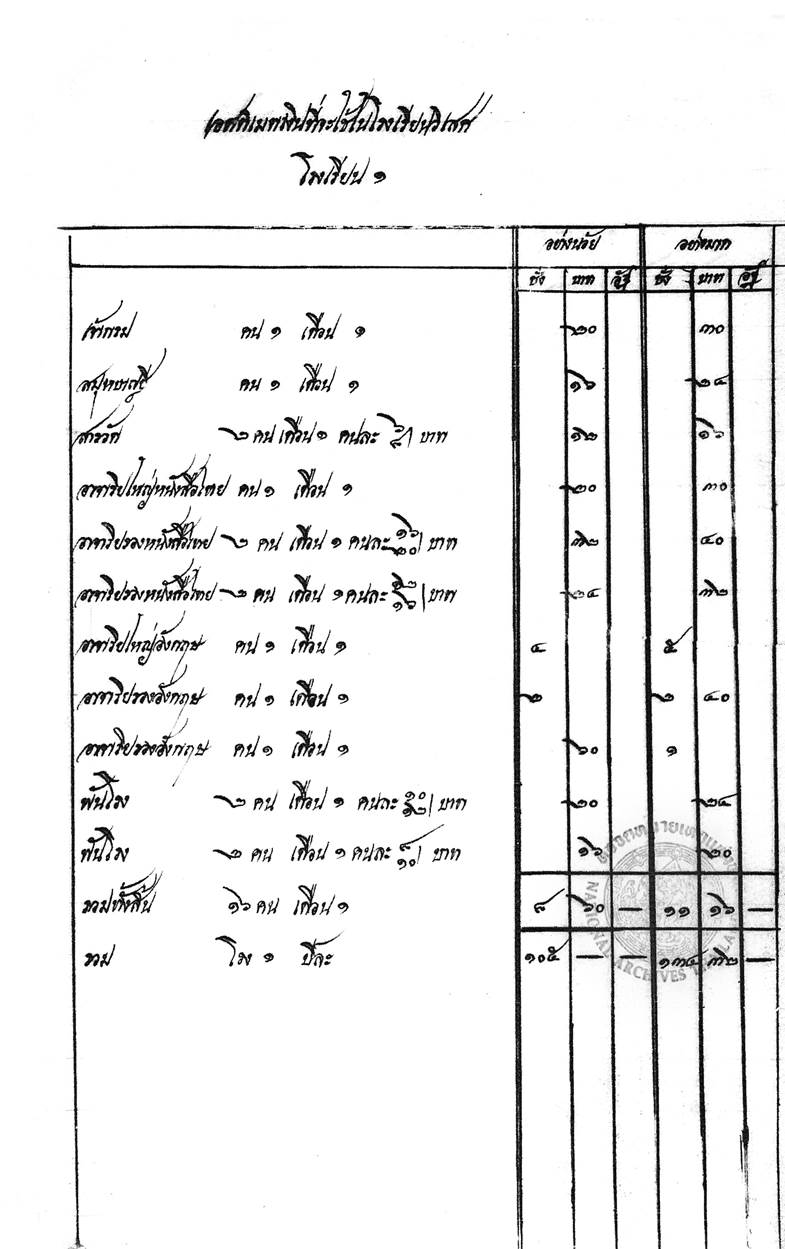 เอศติเมตเงินที่จะใช้ในโรงเรียนวิเสศ
โรงเรียน ๑
อย่างน้อย อย่างมาก
ชั่ง บาท อัฐ ชั่ง บาท อัฐ
เจ้ากรม คน ๑ เดือน ๑ ๒๐ ๓๐
สมุหบาญชี คน ๑ เดือน ๑ ๑๖ ๒๔
สารวัด ๒ คน เดือน ๑ คนละ ๖/๘ บาท ๑๒ ๑๖
อาจาริยใหญ่หนังสือไทย คน ๑ เดือน ๑ ๒๐ ๓๐
อาจาริยรองหนังสือไทย ๒ คน เดือน ๑ คนละ ๑๖/๒๐ บาท ๓๒ ๔๐
อาจาริยรองหนังสือไทย ๒ คน เดือน ๑ คนละ ๑๒/๑๖ บาท ๒๔ ๓๒
อาจาริยใหญ่อังกฤษ คน ๑ เดือน ๑ ๔ ๕
อาจาริยรองอังกฤษ คน ๑ เดือน ๑ ๒ ๒ ๔๐
อาจาริยรองอังกฤษ คน ๑ เดือน ๑ ๖๐ ๑
พันโรง ๒ คน เดือน ๑ คนละ ๑๐/๑๒ บาท ๒๐ ๒๔
พันโรง ๒ คน เดือน ๑ คนละ ๘/๑๐ บาท ๑๖ ๒๐
รวมทั้งสิ้น ๑๖ คน เดือน ๑ ๘ ๖๐ — ๑๑ ๑๖ —
รวม โรง ๑ ปีละ ๑๐๕ — — ๑๓๔ ๓๒ —
NATIONAL ARCHIVES